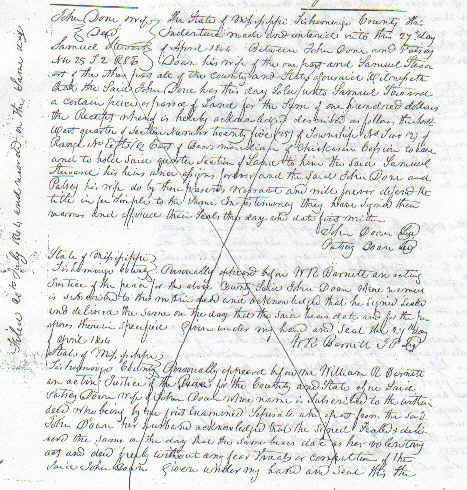 John Doan & wife The State of Mississippi Tishomingo County this
to Deed Indenture made and entered into this 27th day
Samuel Steward of April 1844 Between John Doan and Patsey
NW 25 T.2 R8E Doan his wife of the one part and Samuel Steward
of the other part all of the County and State aforesaid Witnesseth
that the Said John Doan has this day Sold unto Samuel Steward
a certain piece or parcel of Land for the Sum of one hundred dollars
the Receipt whereof is hereby acknowledged described as follows the North
West quarter of Section number twenty five (25) of Township No Two (2) of
Range No Eight (8) East of Basis meridian of Chickasaw Cession to have
and to hold Said quarter Section of Land to him the Said Samuel
Steward his heirs and assigns forever and the Said John Doan and
Patsey his wife do by these presents warrant and will forever defend the
title in fee Simple to the Same In testimony they have Signed their
names and affixed their Seals this day and date first written
John Doan Seal
Patsey Doan Seal
State of Mississippi
Tishomingo County Personally appeared before W R Barnett an acting
Justice of the peace for the above County Said John Doan whose name
is subscribed to the within deed and acknowledged that he signed Sealed
and delivered the Same on the day that the Said bears date and for the pur
poses therein Specified Given under my hand and Seal this 27 day
April 1844
W R Barnett J P Seal
State of Mississippi
Tishomingo County Personally appeared before me William R Barnett
an acting Justice of the Peace for the County and State afore Said
Patsey Doan wife of John Doan whose name is Subscribed to the within
deed who being by me first Examined Seperate and apart from the Said
John Doan her husband acknowledged that she Signed Sealed & deliv
ered the Same on the day that the Same bears date as her voluntary
act and deed freely without any fear threats or compulsion of the
Said John Doan Given under my hand and Seal this the
Filed 20th July 1844 and recorded on the Same day